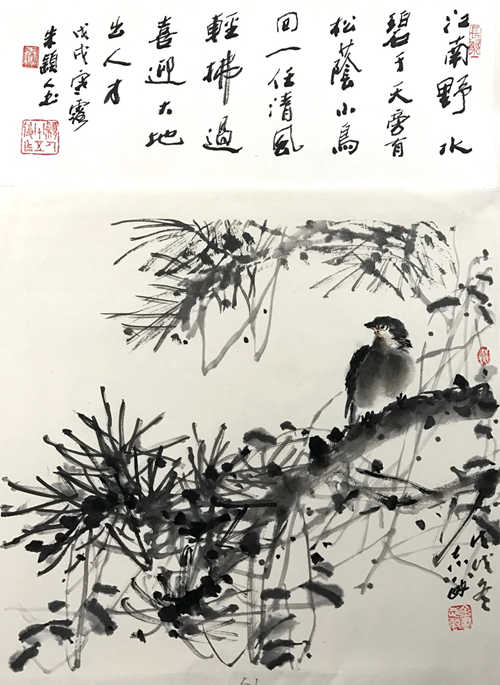 江南野水
碧于天旁有
松蔭小鳥
回一任清風
輕拂過
喜迎大地
出人才
戊戌寒露
朱穎人
戊戌冬